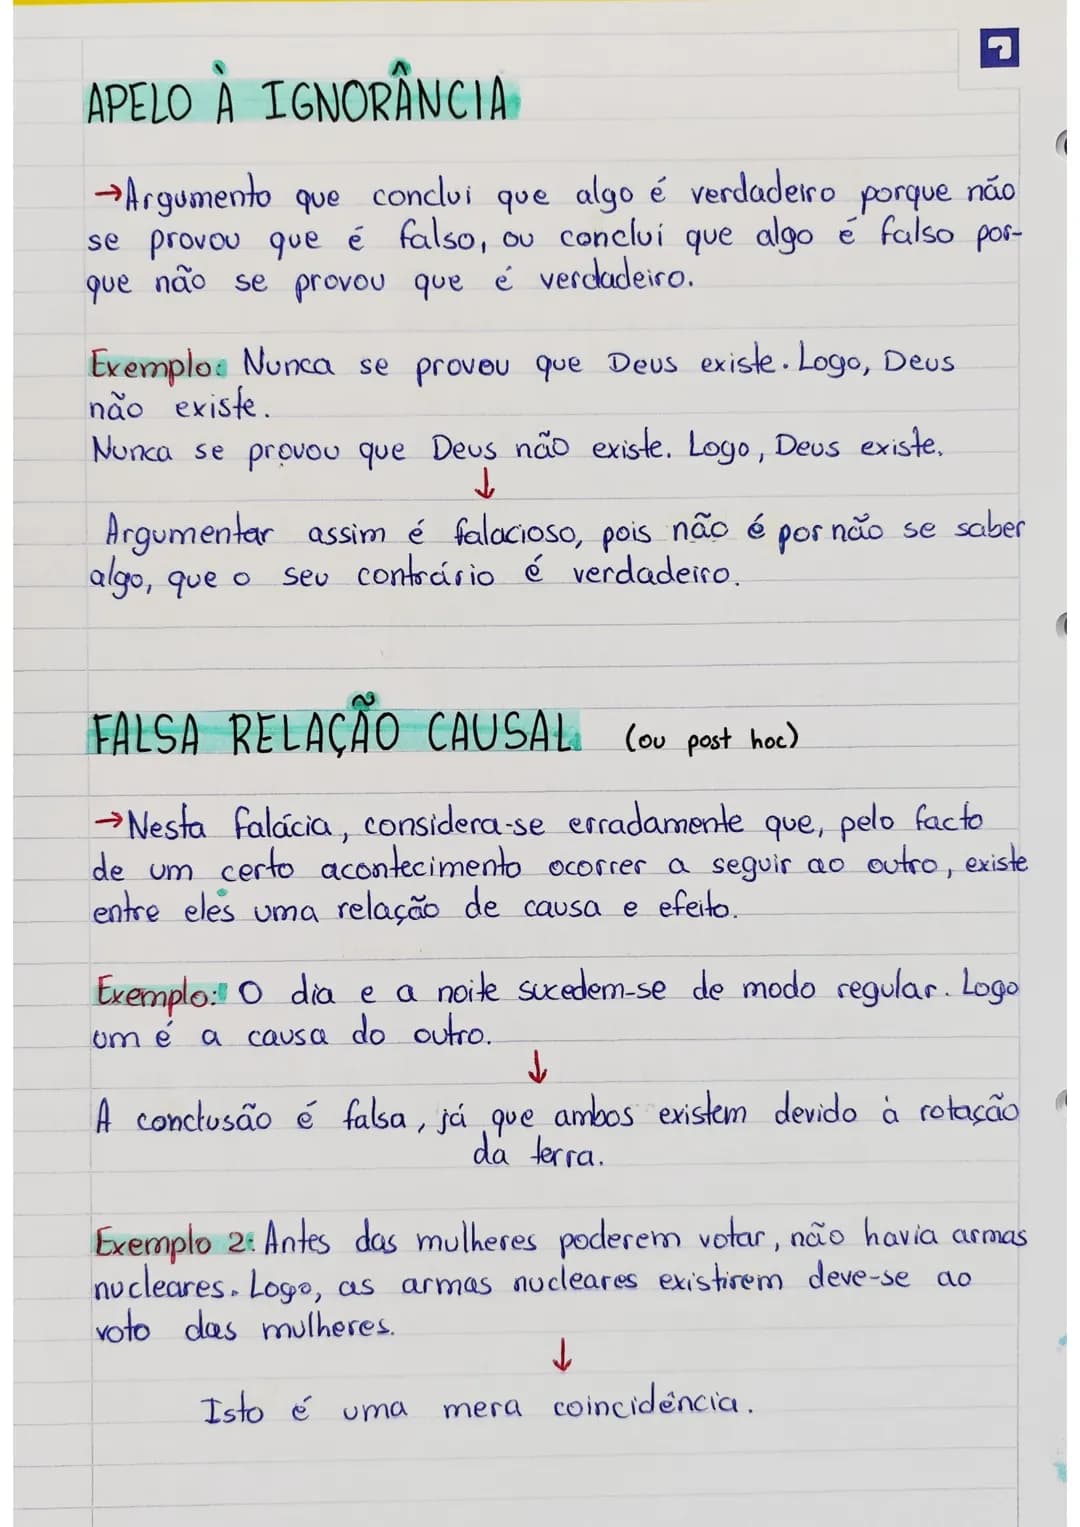 APELO À IGNORÂNCIA
→Argumento que conclui que algo é verdadeiro porque não
se provou que é falso, ou conclui que algo é falso por-
que não se provou que é verdadeiro.
Exemplo: Nunca se provou que Deus existe. Logo, Deus
não existe.
Nunca se provou que Deus não existe. Logo, Deus existe.
↓
Argumentar assim é falacioso, pois não é por não se saber
algo, que o seu contrário é verdadeiro.
FALSA RELAÇÃO CAUSAL (ou post hoc)
→Nesta falácia, considera-se erradamente que, pelo facto
de um certo acontecimento ocorrer a seguir ao outro, existe
entre eles uma relação de causa e efeito.
Exemplo: O dia e a noite sucedem-se de modo regular. Logo
um é a causa do outro.
↓
A conclusão é falsa, já que ambos existem devido à rotação
da terra.
Exemplo 2: Antes das mulheres poderem votar, não havia armas
nucleares. Logo, as armas nucleares existirem deve-se ao
voto das mulheres.
↓
Isto é uma mera coincidência.